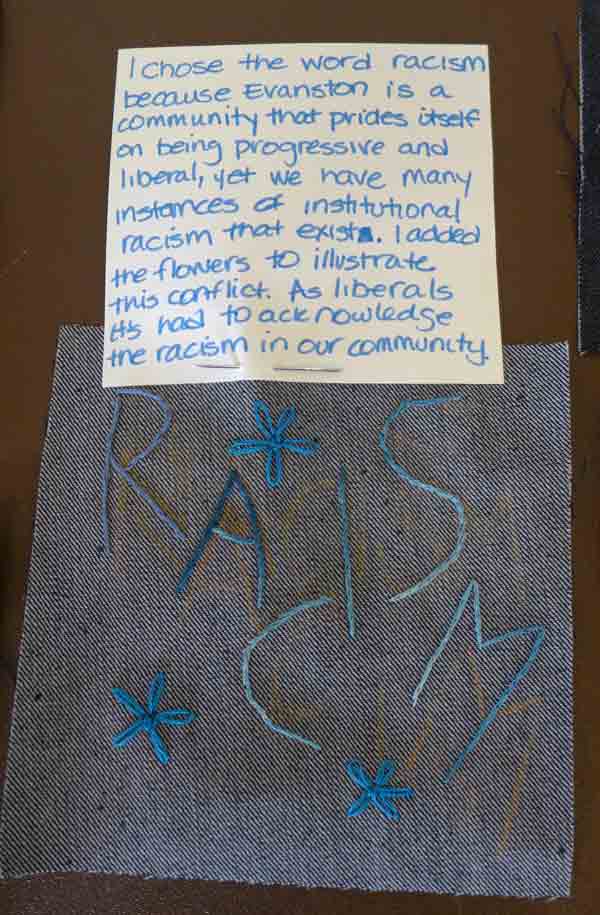 I chose the word racism
because Evanston is a
community that prides itself
on being progressive and
liberal, yet we have many
instances of institutional
racism that exists. I added
the flowers to illustrate
this conflict. As liberals
it's had to acknowledge
the racism in our community.
RACISM